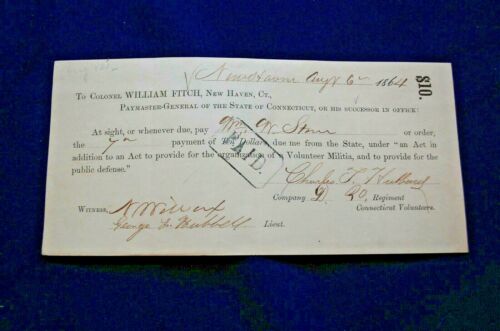 New Haven Augt 6th 1864
$10.
To Colonel WILLIAM FITCH, New Haven, Ct.,
Paymaster-General of the State of Connecticut, or his successor in office:
At sight, or whenever due, pay Wm W Stone or order,
the 7th payment of Ten Dollars, due me from the State, under "an Act in
addition to an Act to provide for the organization of a Volunteer Militia, and to provide for the
public defense."
PAID.
Charles T.
Company D, 20, Regiment
Connecticut Volunteers.
Witness,
George L. Hubbell Lieut.